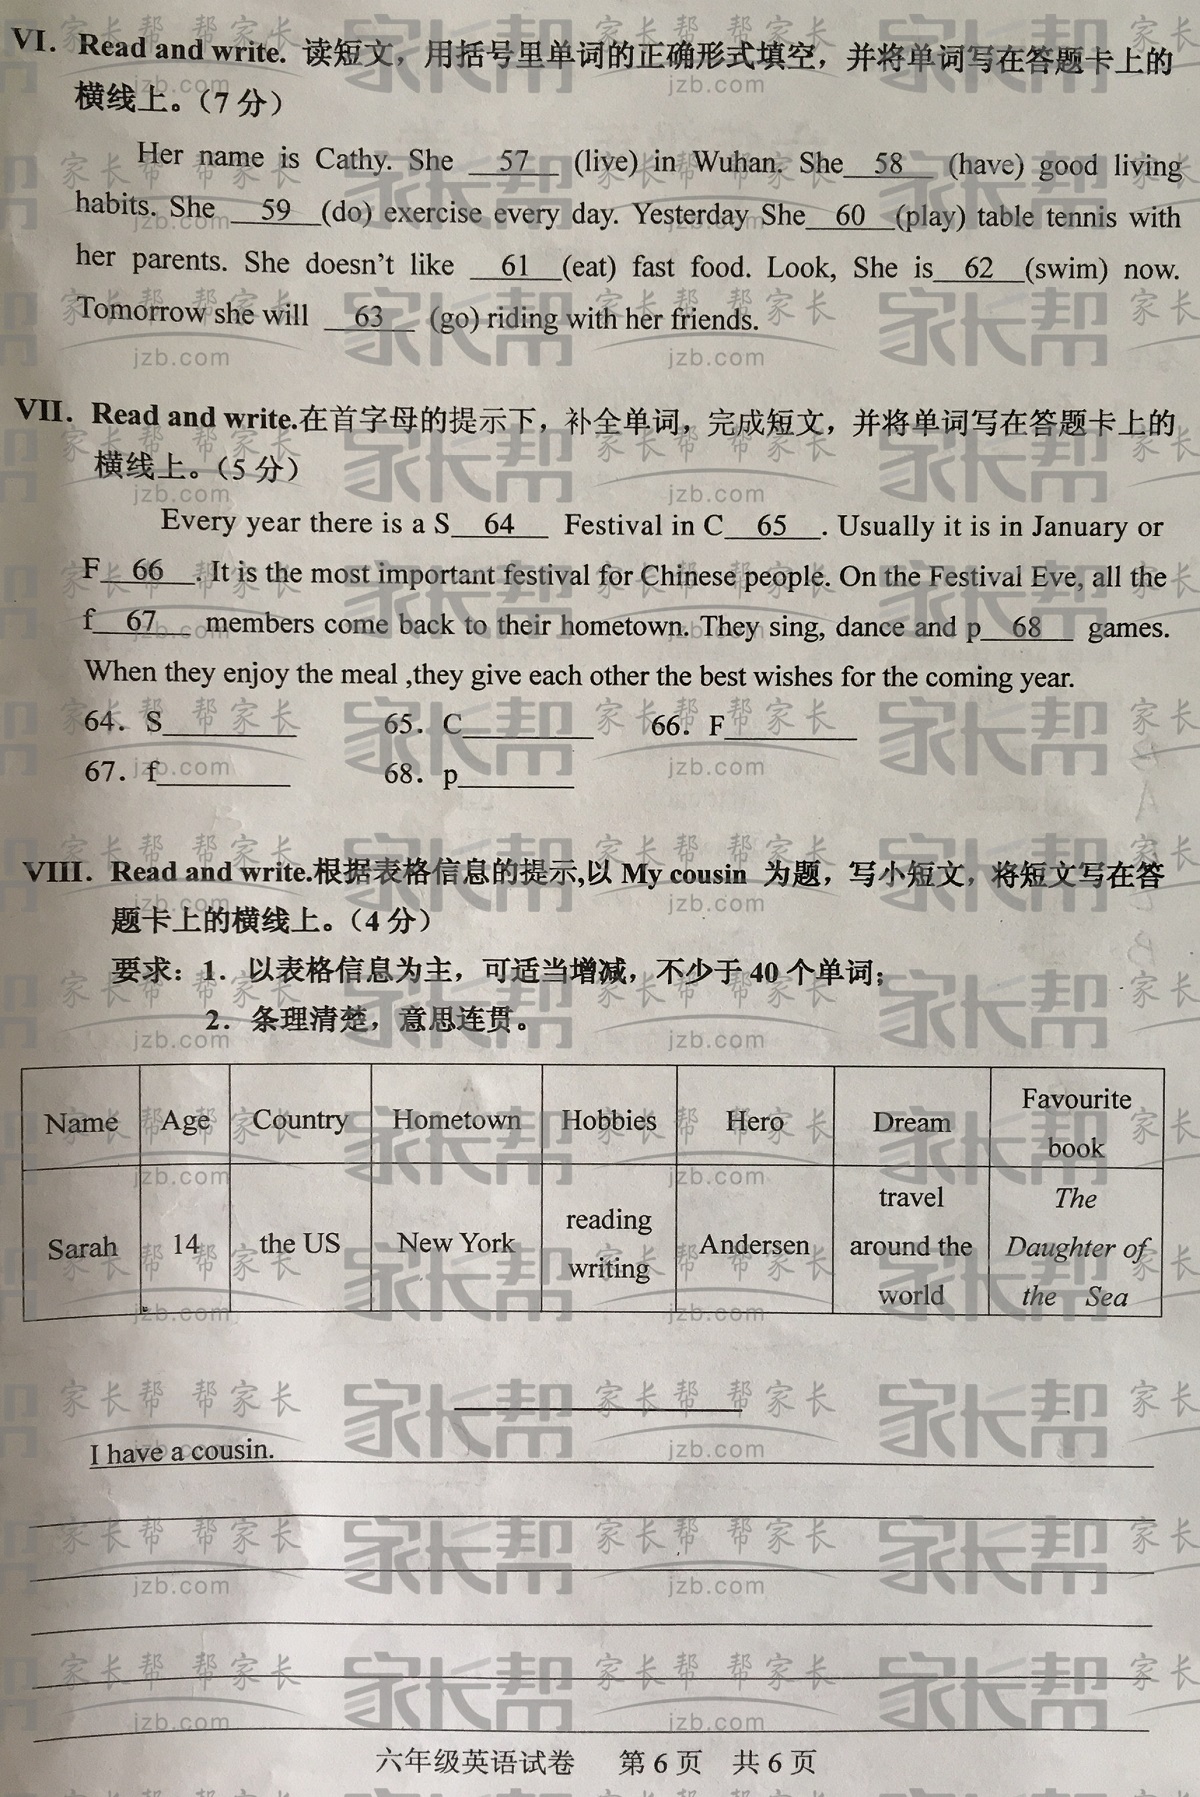 VI. Read and write. 读短文，用括号里单词的正确形式填空，并将单词写在答题卡上的
横线上。（7 分）
Her name is Cathy. She 57 (live) in Wuhan. She 58 (have) good living
habits. She 59 (do) exercise every day. Yesterday She 60 (play) table tennis with
her parents. She doesn't like 61 (eat) fast food. Look, She is 62 (swim) now.
Tomorrow she will 63 (go) riding with her friends.
VII. Read and write.在首字母的提示下，补全单词，完成短文，并将单词写在答题卡上的
横线上。（5 分）
Every year there is a S 64 Festival in C 65 . Usually it is in January or
F 66 . It is the most important festival for Chinese people. On the Festival Eve, all the
f 67 members come back to their hometown. They sing, dance and p 68 games.
When they enjoy the meal ,they give each other the best wishes for the coming year.
64. S________ 65. C________ 66. F________
67. f________ 68. p________
VIII. Read and write.根据表格信息的提示,以 My cousin 为题，写小短文，将短文写在答
题卡上的横线上。（4 分）
要求：1. 以表格信息为主，可适当增减，不少于 40 个单词；
2. 条理清楚，意思连贯。
Name Age Country Hometown Hobbies Hero Dream Favourite book
Sarah 14 the US New York reading writing Andersen travel around the world The Daughter of the Sea
I have a cousin.
六年级英语试卷 第 6 页 共 6 页
家长帮
jzb.com